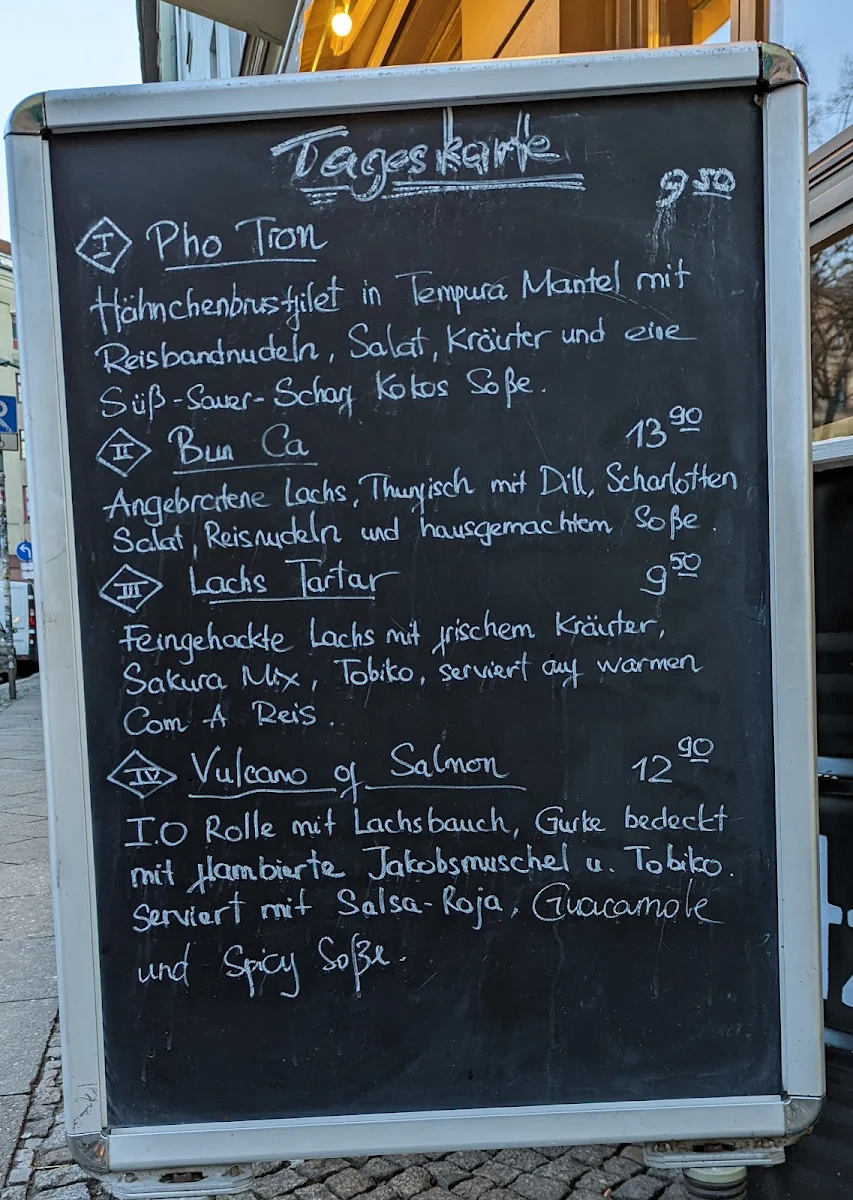 Tageskarte
9 50
I Pho Tron
Hähnchenbrustfilet in Tempura Mantel mit
Reisbandnudeln, Salat, Kräuter und eine
Süß-Sauer-Scharf Kokos Soße.
II Bun Ca 13 90
Angebratene Lachs, Thunfisch mit Dill, Scharlotten
Salat, Reisnudeln und hausgemachtem Soße.
III Lachs Tartar 9 50
Feingehackte Lachs mit frischem Kräuter,
Sakura Mix, Tobiko, serviert auf warmen
Com A Reis.
IV Vulcano of Salmon 12 90
I.O Rolle mit Lachsbauch, Gurke bedeckt
mit flambierte Jakobsmuschel u. Tobiko.
serviert mit Salsa-Roja, Guacamole
und Spicy Soße.